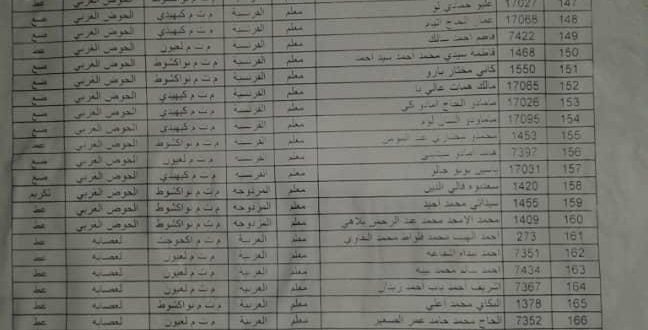 147 17027 حمادي لو معلم الفرنسية م ت م كيهيدي الحوض الغربي
148 17068 عمار الحاج معلم الفرنسية م ت م كيهيدي الحوض الغربي ضع
149 7422 فاطمة احمد سالك معلم الفرنسية م ت م لعيون الحوض الغربي ضع
150 1468 فاطمة سيدي محمد احمد سيد احمد معلم الفرنسية م ت م نواكشوط الحوض الغربي ضع
151 1550 كابي مختار بارو معلم الفرنسية م ت م نواكشوط الحوض الغربي ضع
152 17065 مالك همات عالي با معلم الفرنسية م ت م كيهيدي الحوض الغربي ضع
153 17026 مامادو الحاج امادو كي معلم الفرنسية م ت م كيهيدي الحوض الغربي ضع
154 17095 مامادو لوم معلم الفرنسية م ت م كيهيدي الحوض الغربي ضع
155 1453 محمدو مختاري عبد المومن معلم الفرنسية م ت م نواكشوط الحوض الغربي عط
156 7397 معلم م ت م لعيون الحوض الغربي ضع
157 17031 ياسين بوبو جالو معلم الفرنسية م ت م كيهيدي الحوض الغربي ضع
158 1420 سعدبوه فالي النين معلم المزدوجه م ت م نواكشوط الحوض الغربي تكريم
159 1455 سيداتي محمد احيد معلم المزدوجه م ت م نواكشوط الحوض الغربي عط
160 1409 محمد الامجد محمد عبد الرحمن بلاهي معلم المزدوجه م ت م نواكشوط الحوض الغربي عط
161 273 احمد محمد محمد معلم العربية م ت م اكجوجت لعصابه عط
162 7351 احمد معلم العربية م ت م لعيون لعصابه عط
163 7434 احمد سالم محمد معلم العربية م ت م لعيون لعصابه عط
164 7367 اشريف احمد باب احمد معلم العربية م ت م لعيون لعصابه عط
165 1378 البكاي محمد اعلي معلم العربية م ت م نواكشوط لعصابه عط
166 7352 الحاج محمد حامد عمر الصغير معلم العربية م ت م لعيون لعصابه عط